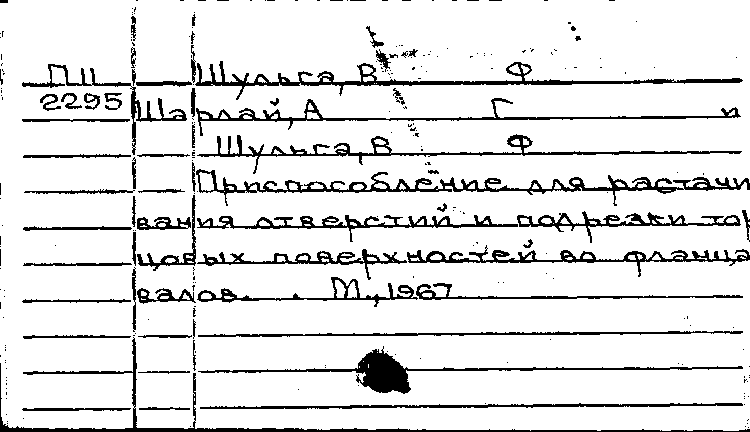 ПИ Шульга, В Ф
2295 Шарлай, А Г и
Шульга, В Ф
Приспособление для растачи
вания отверстий и подрезки тор
цовых поверхностей во фланца
валов. . М., 1967